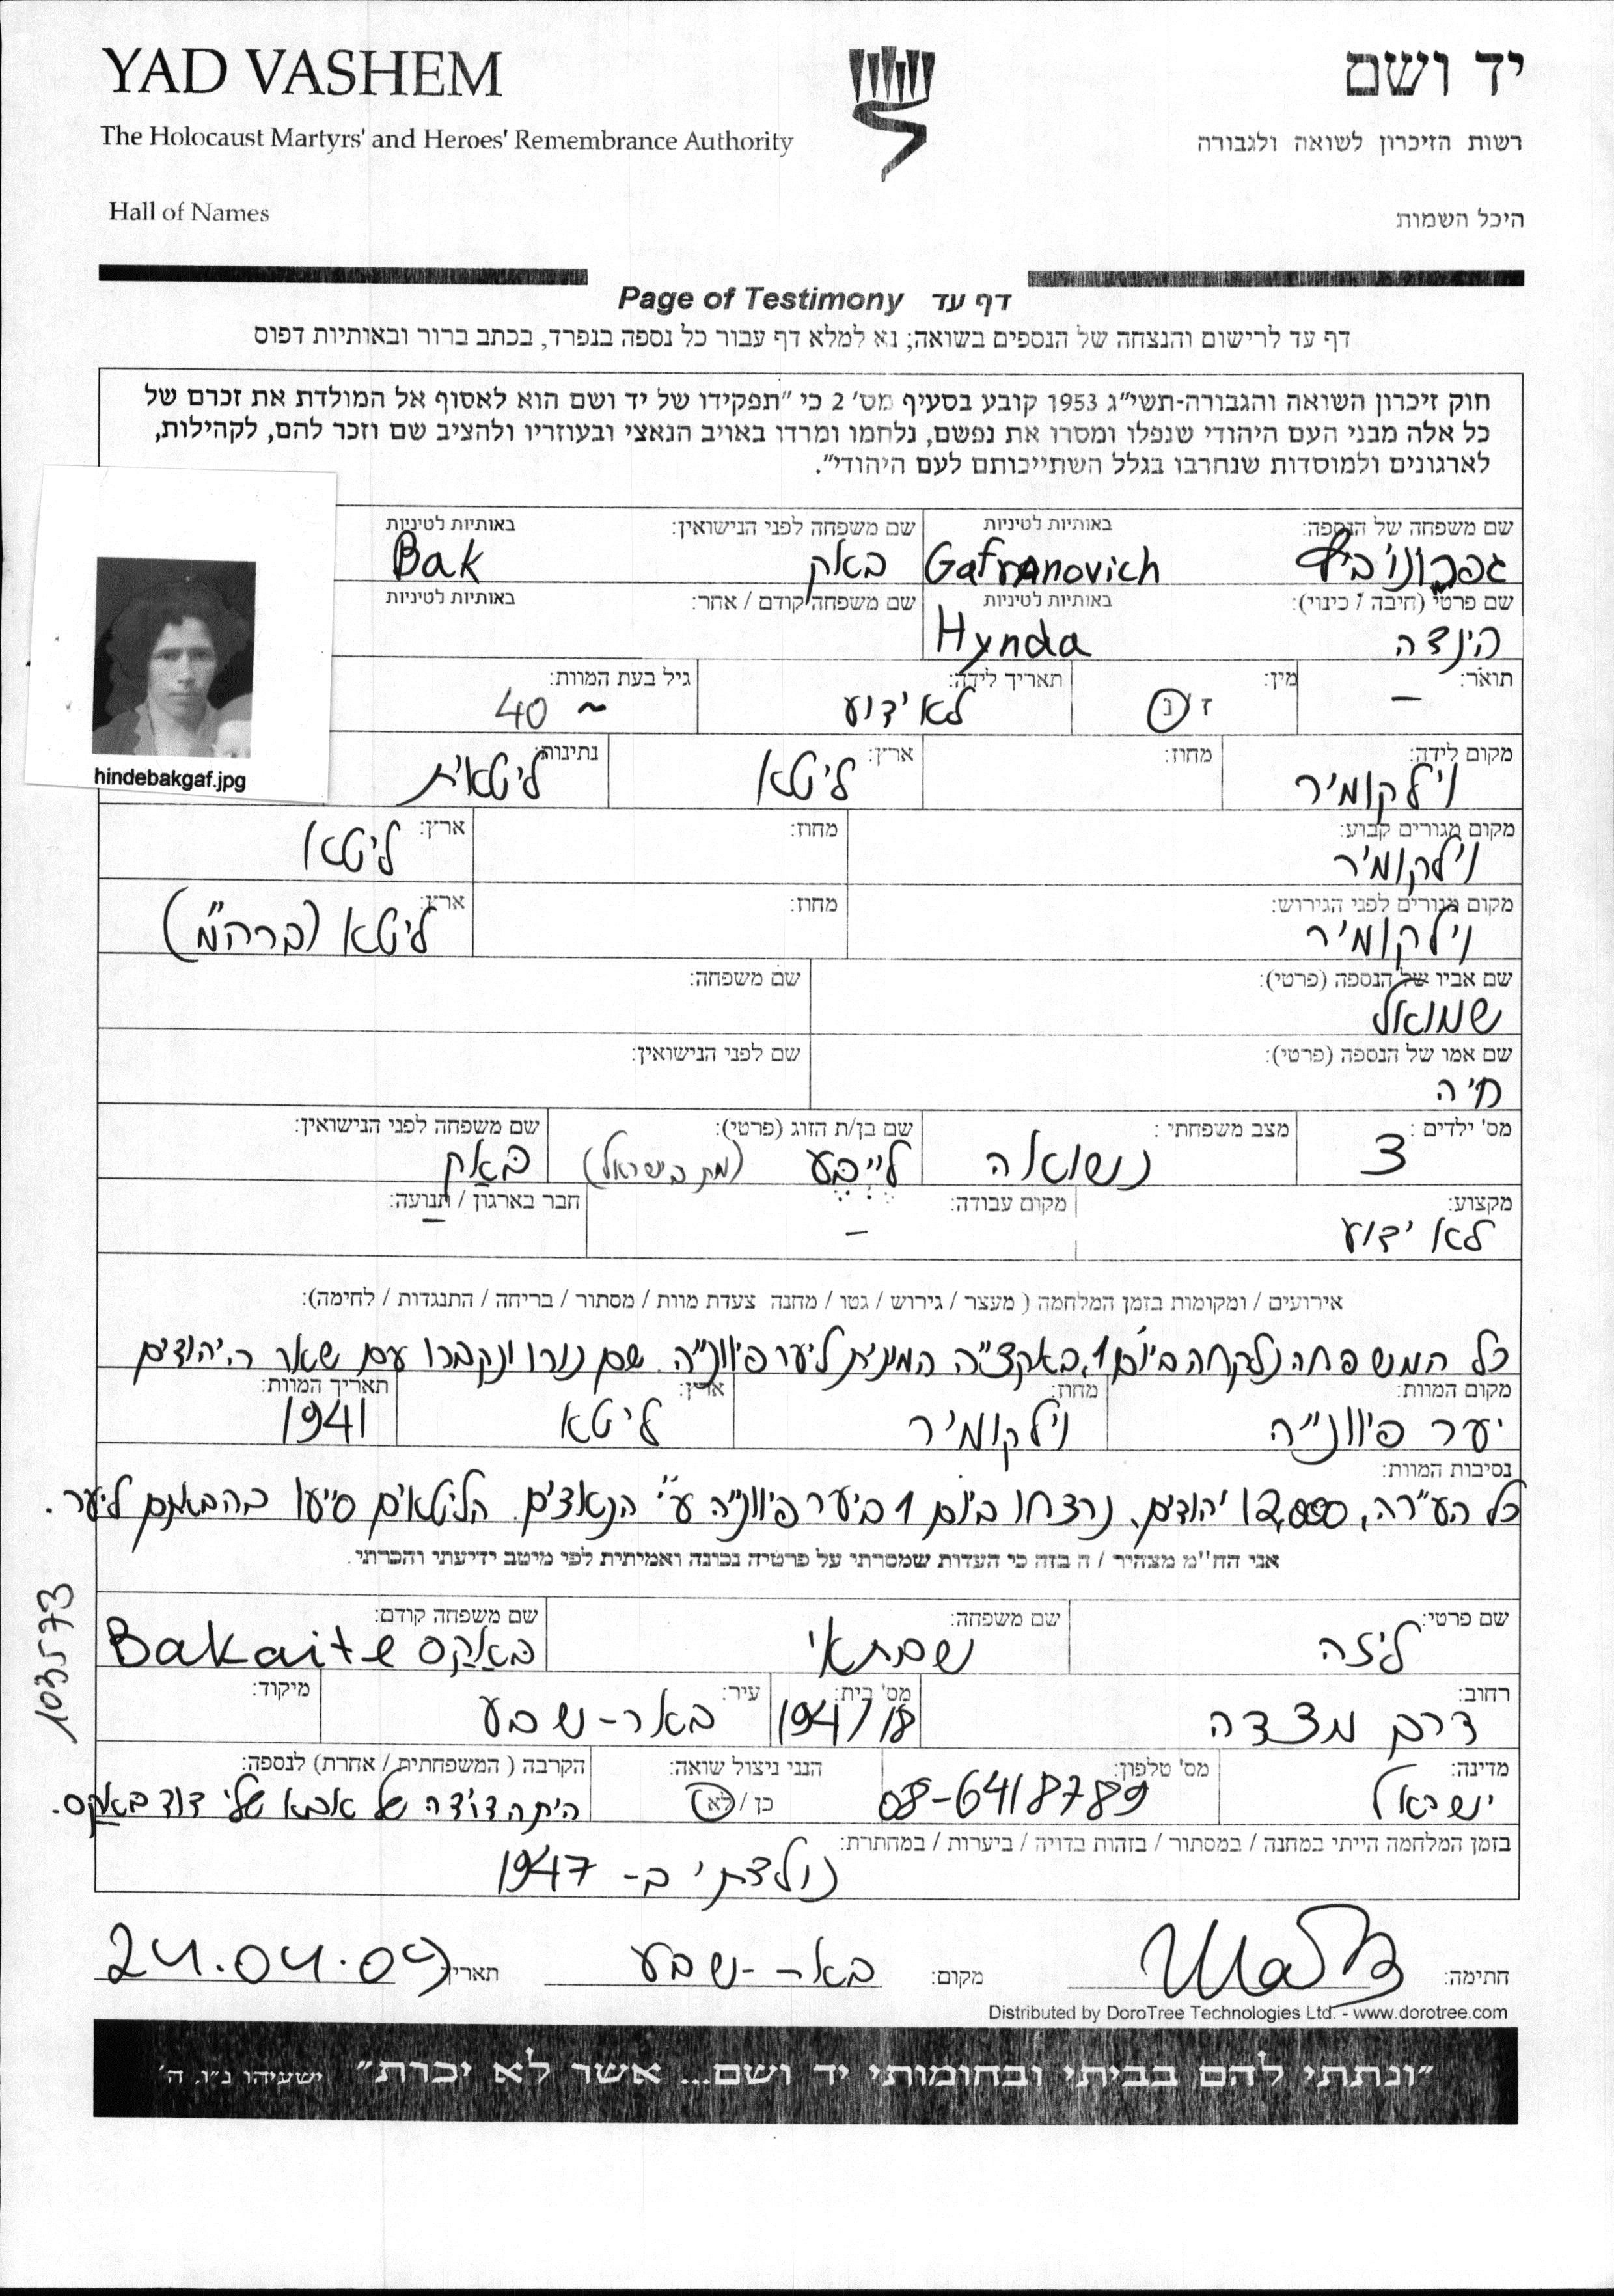 YAD VASHEM
יד ושם
The Holocaust Martyrs' and Heroes' Remembrance Authority
רשות הזיכרון לשואה ולגבורה
Hall of Names
היכל השמות
Page of Testimony דף עד
דף עד לרישום והנצחה של הנספים בשואה; נא למלא דף עבור כל נספה בנפרד, בכתב ברור ובאותיות דפוס
חוק זיכרון השואה והגבורה-תשי"ג 1953 קובע בסעיף מס' 2 כי "תפקידו של יד ושם הוא לאסוף אל המולדת את זכרם של
כל אלה מבני העם היהודי שנפלו ומסרו את נפשם, נלחמו ומרדו באויב הנאצי ובעוזריו ולהציב שם וזכר להם, לקהילות,
לארגונים ולמוסדות שנחרבו בגלל השתייכותם לעם היהודי".
שם משפחה של הנספה: באותיות לטיניות שם משפחה לפני הנישואין: באותיות לטיניות
גפרונוביץ Gafranovich באק Bak
שם פרטי (חיבה / כינוי): באותיות לטיניות שם משפחה קודם / אחר: באותיות לטיניות
הינדה Hynda
תואר: מין: תאריך לידה: גיל בעת המוות:
– ז נ לא ידוע ~ 40
hindebakgaf.jpg
מקום לידה: מחוז: ארץ: נתינות:
וילקומיר ליטא ליטאית
מקום מגורים קבוע: מחוז: ארץ:
וילקומיר ליטא
מקום מגורים לפני הגירוש: מחוז: ארץ:
וילקומיר ליטא (ברה"מ)
שם אביו של הנספה (פרטי): שם משפחה:
שמואל
שם אמו של הנספה (פרטי): שם לפני הנישואין:
חיה
מס' ילדים: מצב משפחתי: שם בן/ת הזוג (פרטי): שם משפחה לפני הנישואין:
3 נשואה לייבע (מת בישראל) באק
מקצוע: מקום עבודה: חבר בארגון / תנועה:
לא ידוע – –
אירועים / ומקומות בזמן המלחמה ( מעצר / גירוש / גטו / מחנה צעדת מוות / מסתור / בריחה / התנגדות / לחימה):
כל המשפחה נלקחה ביום 1, באקציה המינית ליער פיווניה. שם נורו ונקברו עם שאר היהודים
מקום המוות: מחוז: ארץ: תאריך המוות:
יער פיווניה וילקומיר ליטא 1941
נסיבות המוות:
כל העיירה, 12,000 יהודים, נרצחו ביום 1 ביער פיווניה ע"י הנאצים. הליטאים סייעו בהבאתם ליער.
אני הח"מ מצהיר / ה בזה כי העדות שמסרתי על פרטיה נכונה ואמיתית לפי מיטב ידיעתי והכרתי.
103573
שם פרטי: שם משפחה: שם משפחה קודם:
ליזה שבתאי באקס Bakaite
רחוב: מס' בית: עיר: מיקוד:
דרך מצדה 18/1947 באר-שבע
מדינה: מס' טלפון: הנני ניצול שואה: הקרבה ( המשפחתית / אחרת) לנספה:
ישראל 08-6418789 כן / לא היתה דודה של אבא שלי דוד באקס.
בזמן המלחמה הייתי במחנה / במסתור / בזהות בדויה / ביערות / במחתרת:
נולדתי ב- 1947
חתימה: מקום: באר-שבע תאריך 24.04.09
Distributed by DoroTree Technologies Ltd. - www.dorotree.com
"ונתתי להם בביתי ובחומותי יד ושם... אשר לא יכרת" ישעיהו נ"ו, ה'